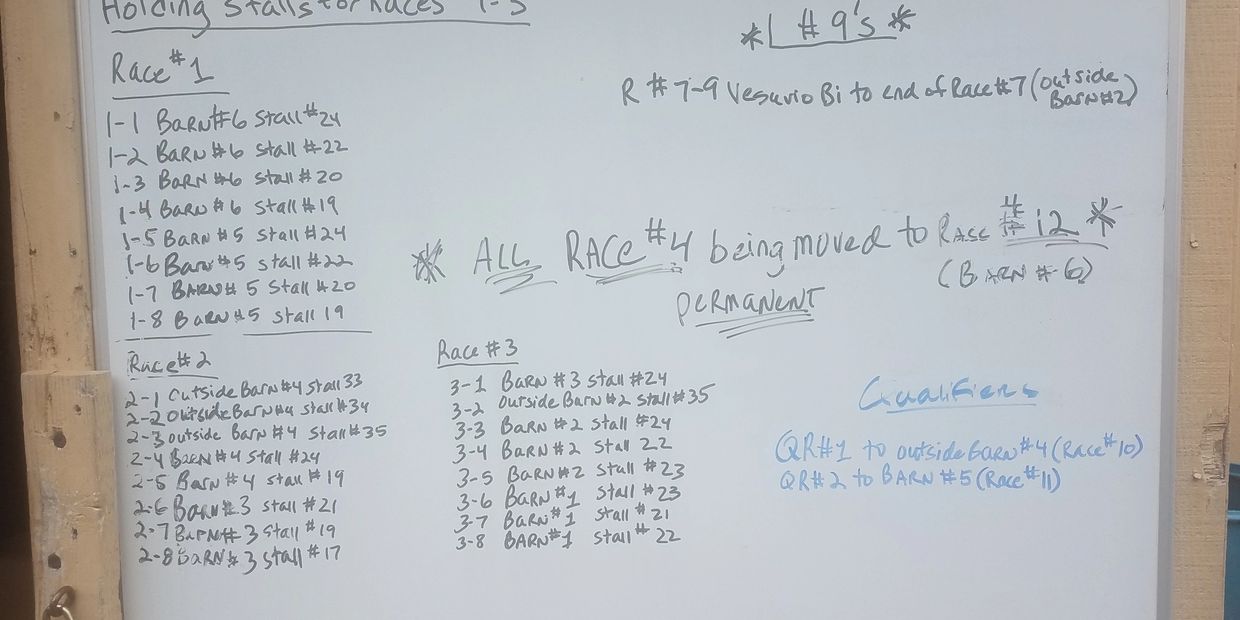 Holding Stalls for Races 1-3
Race #1
1-1 Barn #6 Stall #24
1-2 Barn #6 Stall #22
1-3 Barn #6 Stall #20
1-4 Barn #6 Stall #19
1-5 Barn #5 Stall #24
1-6 Barn #5 Stall #22
1-7 Barn # 5 Stall #20
1-8 Barn #5 Stall 19
Race #2
2-1 Outside Barn #4 Stall 33
2-2 Outside Barn #4 Stall #34
2-3 outside Barn #4 Stall #35
2-4 Barn #4 Stall #24
2-5 Barn #4 Stall #19
2-6 Barn #3 Stall #21
2-7 Barn #3 Stall #19
2-8 Barn #3 Stall #17
Race #3
3-1 Barn #3 Stall #24
3-2 Outside Barn #2 Stall #35
3-3 Barn #2 Stall #24
3-4 Barn #2 Stall 22
3-5 Barn #2 Stall #23
3-6 Barn #1 Stall #23
3-7 Barn #1 Stall #21
3-8 Barn #1 Stall #22
* L # 9's *
R #7-9 Vesuvio Bi to end of Race #7 (Outside
Barn #2)
* ALL RACE #4 being moved to Race #12 *
(BARN #6)
PERMANENT
Qualifiers
QR#1 to outside Barn #4 (Race #10)
QR#2 to BARN #5 (Race #11)